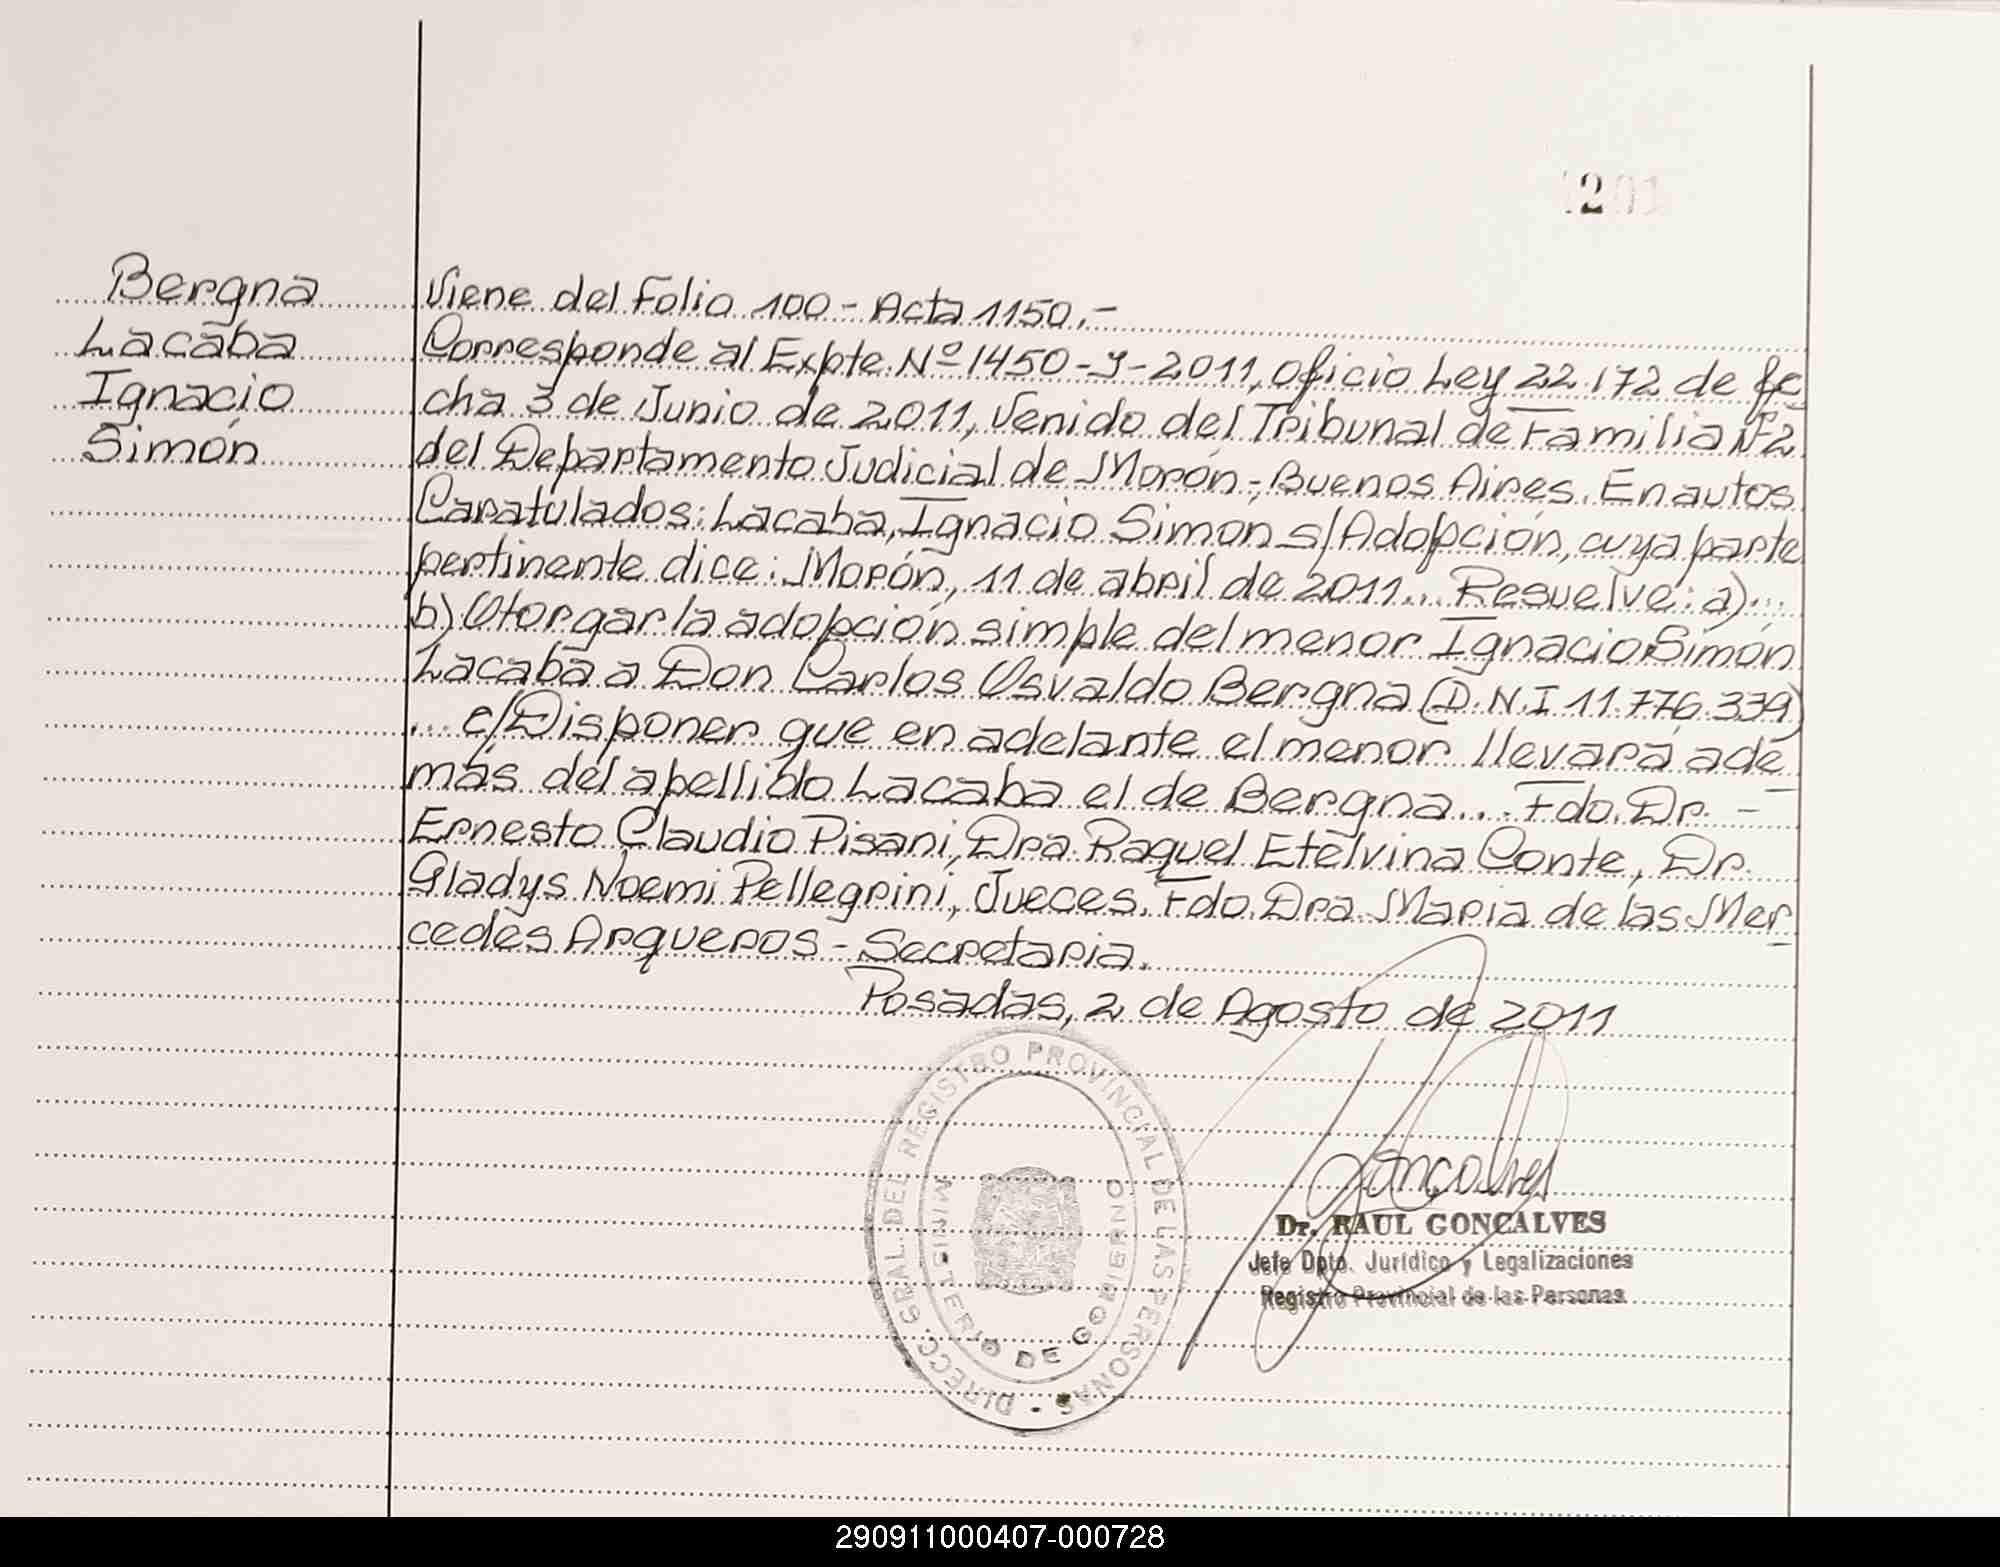 201
Bergna
Lacaba
Ignacio
Simón
Viene del Folio 100 - Acta 1150.-
Corresponde al Expte. Nº 1450-J-2011, oficio Ley 22.172 de fe
cha 3 de Junio de 2011, venido del Tribunal de Familia Nº 2
del Departamento Judicial de Morón-, Buenos Aires. En autos
Caratulados: Lacaba, Ignacio Simón s/Adopción, cuya parte
pertinente dice: Morón, 11 de abril de 2011... Resuelve: a)...
b) Otorgar la adopción simple del menor Ignacio Simón
Lacaba a Don Carlos Osvaldo Bergna (D.N.I 11.776.339)
... c/Disponer que en adelante el menor llevará ade
más del apellido Lacaba el de Bergna... Fdo. Dr. -
Ernesto Claudio Pisani, Dra. Raquel Etelvina Conte, Dr.
Gladys Noemi Pellegrini, Jueces. Fdo. Dra. Maria de las Mer
cedes Arqueros - Secretaria.
Posadas, 2 de Agosto de 2011
DIRECC. GRAL. DEL REGISTRO PROVINCIAL DE LAS PERSONAS
MINISTERIO DE GOBIERNO
Goncalves
Dr. RAUL GONCALVES
Jefe Dpto. Jurídico y Legalizaciones
Registro Provincial de las Personas
290911000407-000728